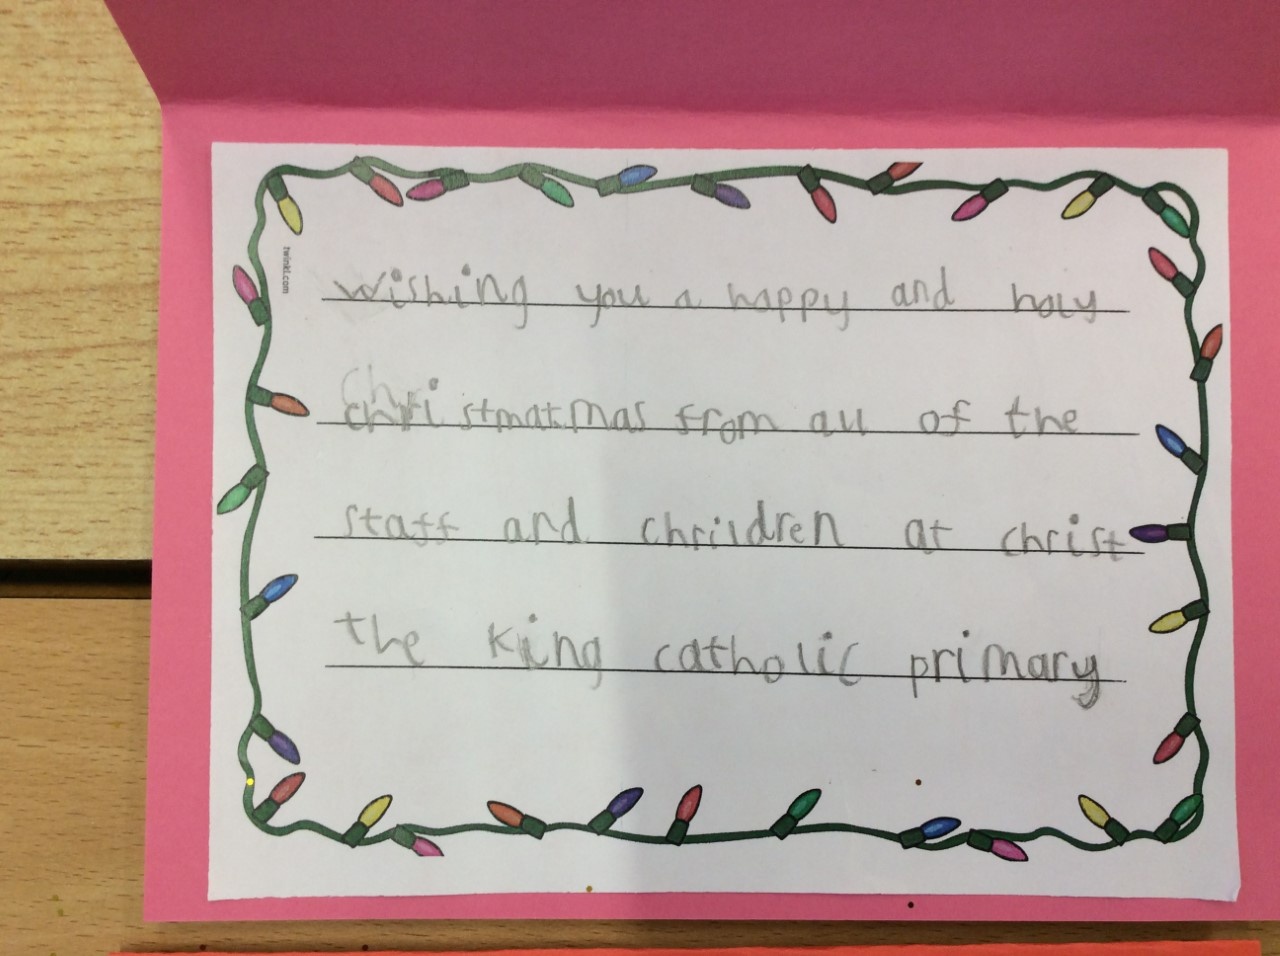 twinkl.com
wishing you a happy and holy
christmatmas from all of the
staff and chrildren at christ
the King catholic primary